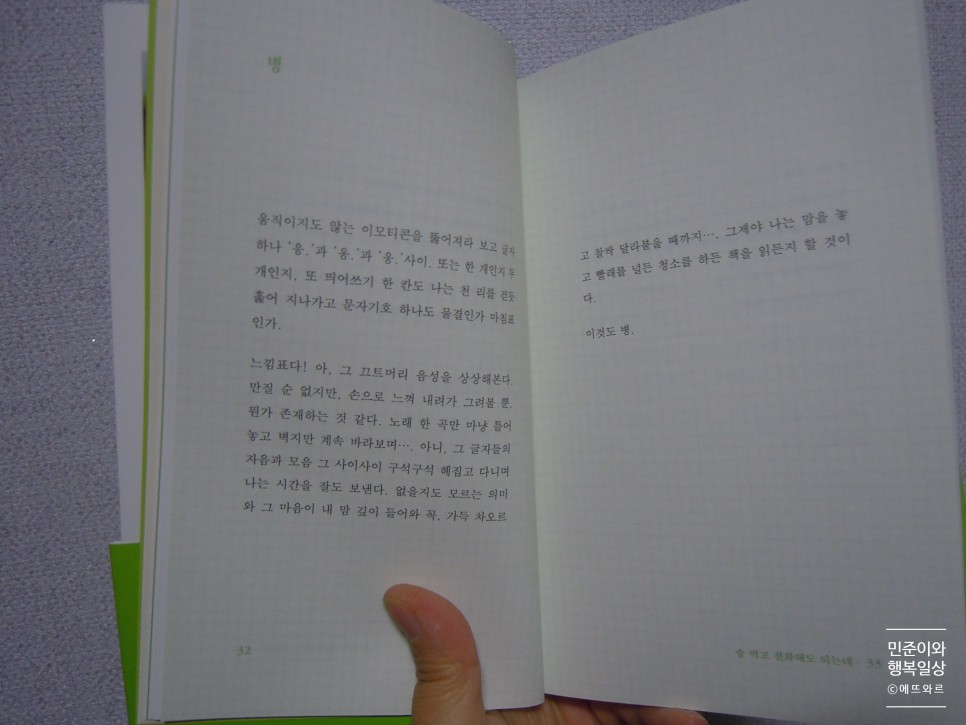 병
움직이지도 않는 이모티콘을 뚫어져라 보고 글자
하나 '응.'과 '응.'과 '응.'사이. 또는 한 개인지 두
개인지, 또 띄어쓰기 한 칸도 나는 천 리를 걷듯
훑어 지나가고 문자기호 하나도 물결인가 마침표
인가.
느낌표다! 아, 그 끄트머리 음성을 상상해본다.
만질 순 없지만, 손으로 느껴 내려가 그려볼 뿐.
뭔가 존재하는 것 같다. 노래 한 곡만 마냥 틀어
놓고 벽지만 계속 바라보며…. 아니, 그 글자들의
자음과 모음 그 사이사이 구석구석 헤집고 다니며
나는 시간을 잘도 보낸다. 없을지도 모르는 의미
와 그 마음이 내 맘 깊이 들어와 꼭, 가득 차오르
32
고 찰싹 달라붙을 때까지…. 그제야 나는 맘을 놓
고 빨래를 널든 청소를 하든 책을 읽든지 할 것이
다.
이것도 병.
술 먹고 전화해도 되는데 33
민준이와
행복일상
ⓒ에뜨와르